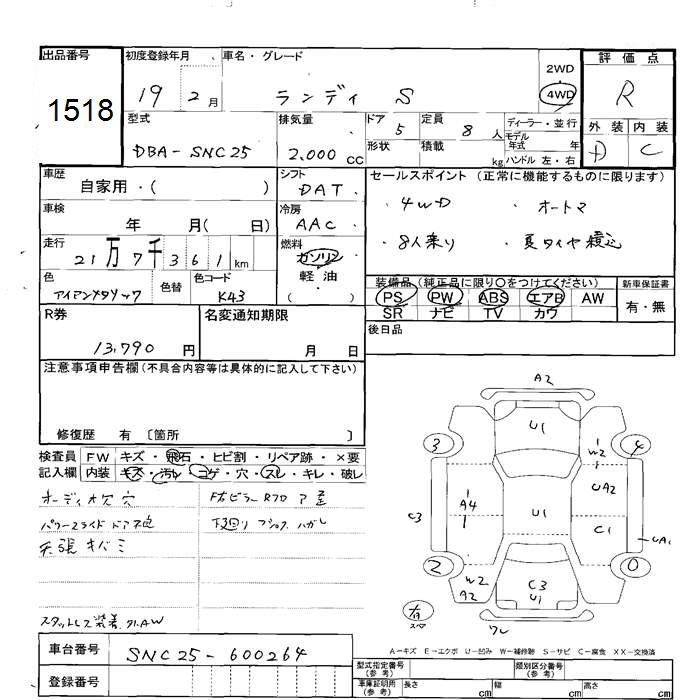 出品番号
1518
初度登録年月
19 2月
車名・グレード
ランディ S
2WD
4WD
評価点
R
外装 内装
D C
型式
DBA-SNC25
排気量
2.000 cc
ドア 5
形状
定員 8 人
積載 kg
ディーラー・並行
モデル
年式 年
ハンドル 左・右
車歴
自家用・( )
シフト
DAT
冷房
AAC
燃料
ガソリン
軽油
( )
車検
年 月( 日)
走行
21万7千361km
色
色替
色コード
K43
セールスポイント (正常に機能するものに限ります)
・4WD ・オートマ
・8人乗り ・夏タイヤ積込
装備品 (純正品に限り〇をつけてください)
PS PW ABS エアB AW
SR ナビ TV カワ
新車保証書
有・無
後日品
R券
13,790 円
名変通知期限
月 日
注意事項申告欄 (不具合内容等は具体的に記入して下さい)
修復歴 有 〔箇所 〕
検査員
記入欄
FW キズ・飛石・ヒビ割・リペア跡・×要
内装 キズ・汚れ・コゲ・穴・スレ・キレ・破レ
オーディオ欠 穴
パワースライドドア不良
天張キバミ
スタッドレス装着
下廻り
A2
U1
3
4
W2
UA2
A4
U1
C3
C1
UA1
2
0
W2
A2
C3
U1
スペア
ワレ
A-キズ E-エクボ U-凹み W-補修跡 S-サビ C-腐食 XX-交換済
車台番号
SNC25-600264
登録番号
型式指定番号
(参考)
類別区分番号
(参考)
車庫証明用
(参考)
長さ cm
幅 cm
高さ cm